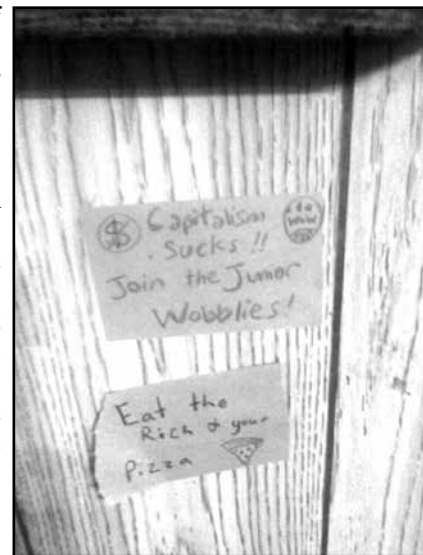 $ Capitalism
Sucks !!
Join the Junior
Wobblies!
Eat the
Rich & your
Pizza